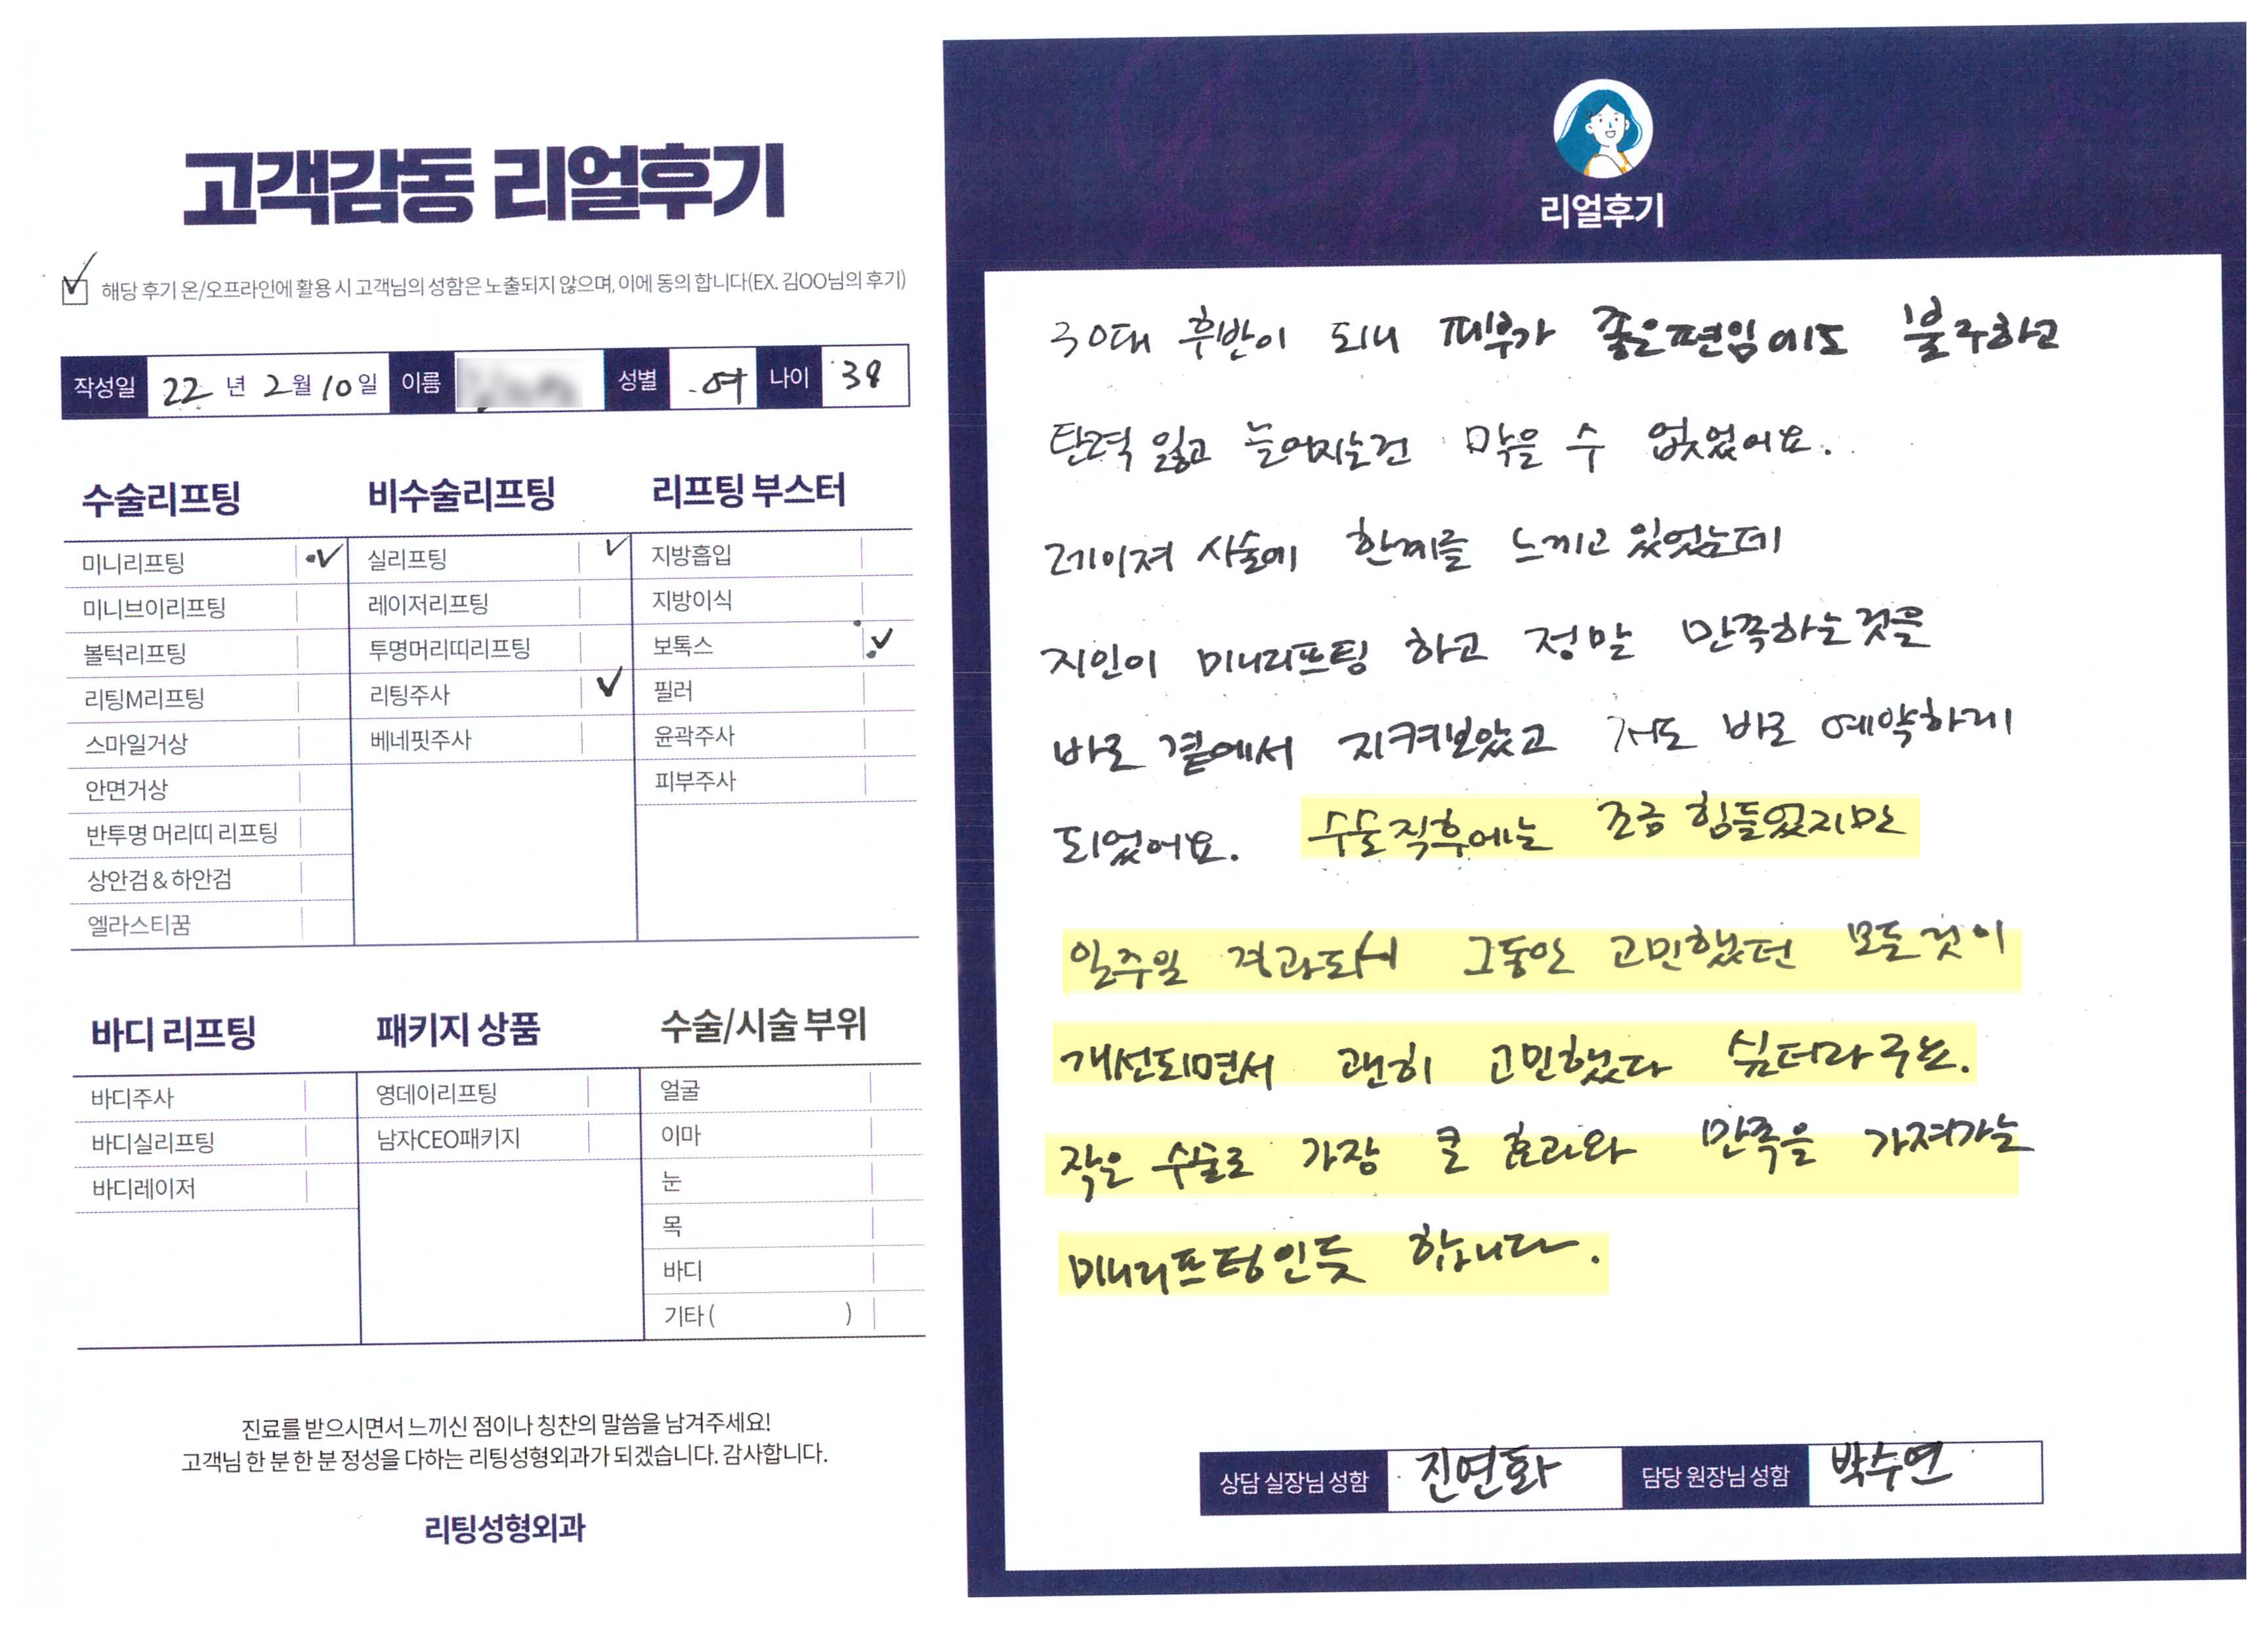 고객감동 리얼후기
해당 후기 온/오프라인에 활용 시 고객님의 성함은 노출되지 않으며, 이에 동의 합니다(EX. 김OO님의 후기)
작성일 22 년 2월 10일 이름 성별 여 나이 38
수술리프팅
미니리프팅
미니브이리프팅
볼턱리프팅
리팅M리프팅
스마일거상
안면거상
반투명 머리띠 리프팅
상안검 & 하안검
엘라스티꿈
비수술리프팅
실리프팅
레이저리프팅
투명머리띠리프팅
리팅주사
베네핏주사
리프팅 부스터
지방흡입
지방이식
보톡스
필러
윤곽주사
피부주사
바디 리프팅
바디주사
바디실리프팅
바디레이저
패키지 상품
영데이리프팅
남자CEO패키지
수술/시술 부위
얼굴
이마
눈
목
바디
기타 ( )
진료를 받으시면서 느끼신 점이나 칭찬의 말씀을 남겨주세요!
고객님 한 분 한 분 정성을 다하는 리팅성형외과가 되겠습니다. 감사합니다.
리팅성형외과
리얼후기
30대 후반이 되니 피부가 좋은편임에도 불구하고
탄력 잃고 늘어지는건 막을 수 없었어요.
레이져 시술에 한계를 느끼고 있었는데
지인이 미니리프팅 하고 정말 만족하는것을
바로 곁에서 지켜보았고 저도 바로 예약하게
되었어요. 수술직후에는 조금 힘들었지만
일주일 경과되서 그동안 고민했던 모든것이
개선되면서 괜히 고민했다 싶더라구요.
작은 수술로 가장 큰 효과와 만족을 가져가는
미니리프팅인듯 합니다.
상담 실장님 성함 진연화 담당 원장님 성함 박수연